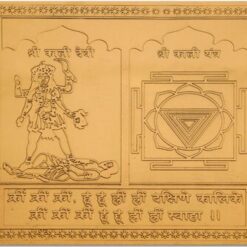 श्री काली देवी
श्री काली यंत्र
क्रीं क्रीं क्रीं, हूं हूं ह्रीं ह्रीं दक्षिणे कालिके
क्रीं क्रीं क्रीं हूं हूं ह्रीं ह्रीं स्वाहा ।।